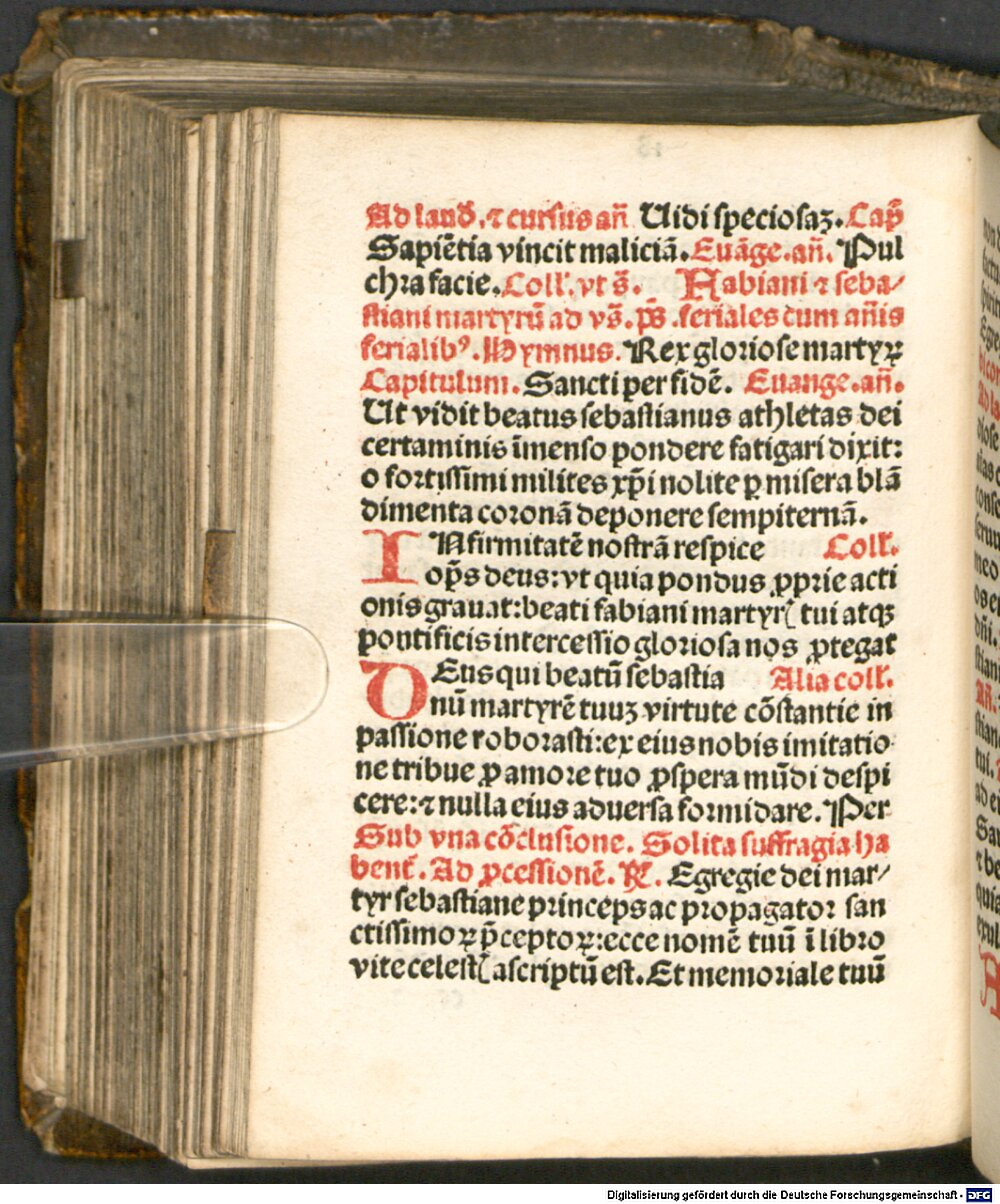 Ad laud̄. ⁊ cursus an̄ Uidi speciosaꝫ. Cap̄
Sapiētia vincit maliciā. Euāge. an̄. Pul
chra facie. Coll'. vt s̄. Fabiani ⁊ seba⸗
stiani martyrū ad vs̄. ps̄. feriales cum an̄is
ferialibꝰ. Hymnus. Rex gloriose martyꝝ
Capitulum. Sancti per fidē. Euange. an̄.
Ut vidit beatus sebastianus athletas dei
certaminis īmenso pondere fatigari dixit:
o fortissimi milites xp̄i nolite ꝑ misera blā
dimenta coronā deponere sempiternā.
INfirmitatē nostrā respice Coll'.
op̄s deus: vt quia pondus ꝓprie acti
onis grauat: beati fabiani martyrꝭ tui atqꝫ
pontificis intercessio gloriosa nos ꝓtegat
DEus qui beatū sebastia Alia coll'.
nū martyrē tuuꝫ virtute cōstantie in
passione roborasti: ex eius nobis imitatio
ne tribue ꝓ amore tuo ꝓspera mūdi despi
cere: ⁊ nulla eius aduersa formidare. Per
Sub vna cōclusione. Solita suffragia ha
bent̄. Ad ꝓcessionē. ℟. Egregie dei mar⸗
tyr sebastiane princeps ac propagator san
ctissimoꝝ p̄ceptoꝝ: ecce nomē tuū ī libro
vite celestꝭ ascriptū est. Et memoriale tuū
Digitalisierung gefördert durch die Deutsche Forschungsgemeinschaft - DFG